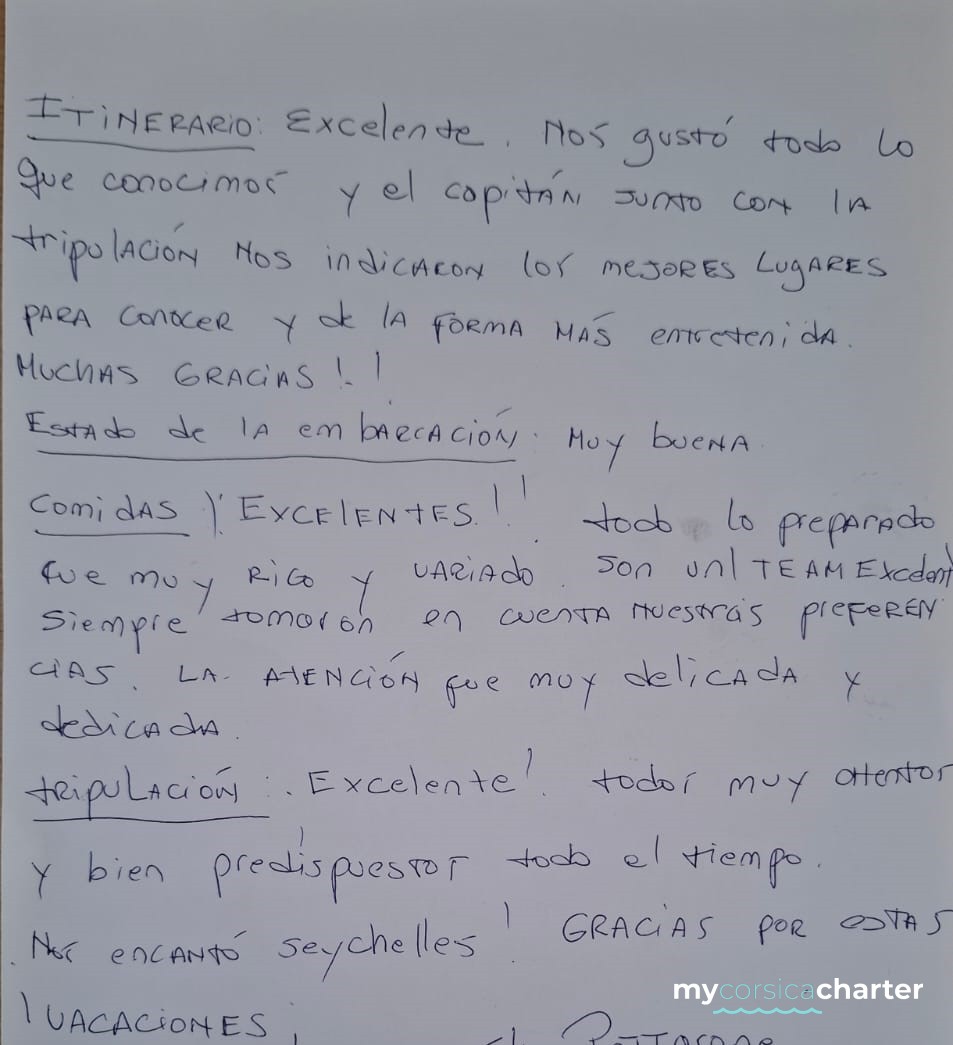 ITINERARIO: Excelente. Nos gustó todo lo
que conocimos y el capitán junto con la
tripulación nos indicaron los mejores lugares
para conocer y de la forma más entretenida.
MUCHAS GRACIAS!!
Estado de la embarcación: Muy buena.
Comidas: EXCELENTES!! todo lo preparado
fue muy rico y variado. Son un TEAM Excelent
Siempre tomaron en cuenta nuestras preferen
cias. La atención fue muy delicada y
dedicada.
tripulación: Excelente! todos muy atentos
y bien predispuestos todo el tiempo.
Nos encantó Seychelles! GRACIAS por estas
VACACIONES
mycorsicacharter